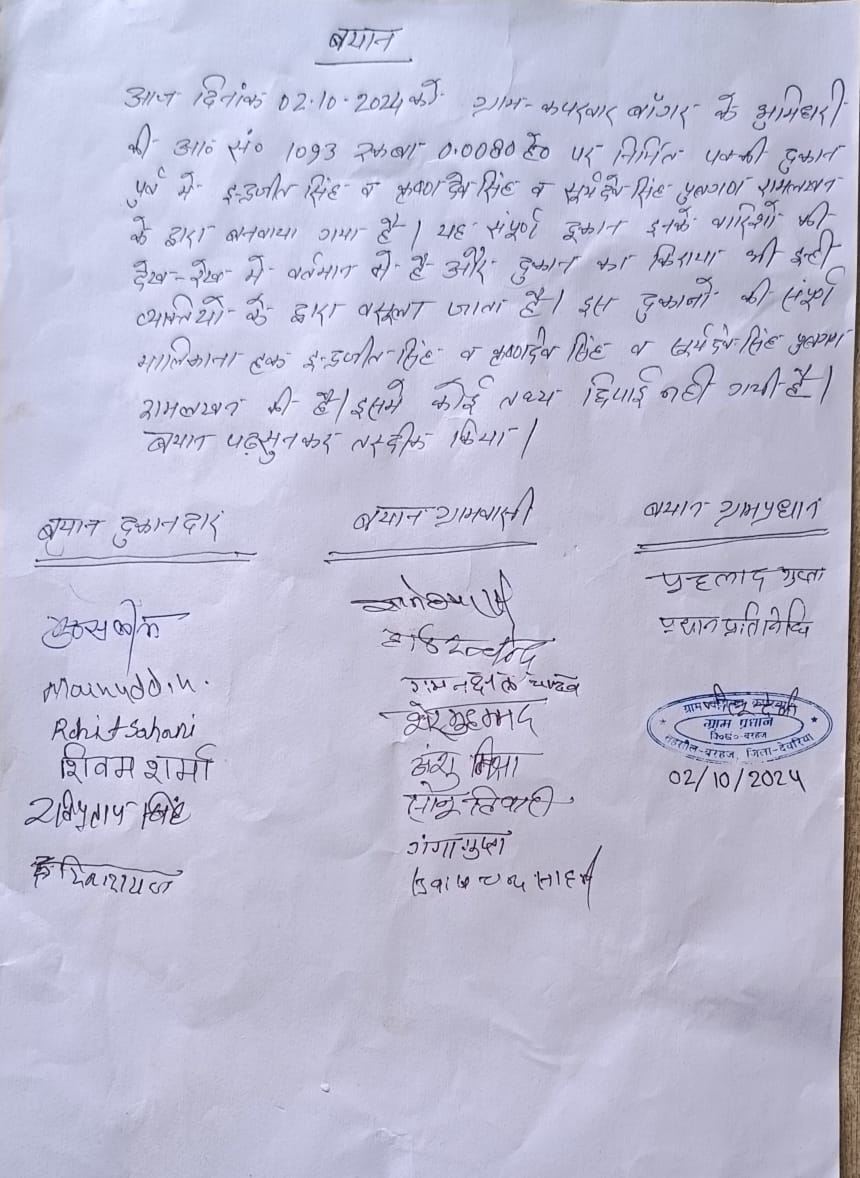 बयान
आज दिनांक 02.10.2024 को ग्राम-कपरवार बाँगर के भुमिधरी
की आ० सं० 1093 रकबा 0.0080 हे० पर निर्मित पक्की दुकान
पुर्व में इन्द्रजीत सिंह व कृष्णदेव सिंह व सूर्यदेव सिंह पुत्रगण रामलखन
के द्वारा बनवाया गया है। यह संपूर्ण दुकान इनके वारिशों की
देख-रेख में वर्तमान में है और दुकान का किराया भी इन्ही
व्यक्तियों के द्वारा वसूला जाता है। इस दुकानों की संपूर्ण
मालिकाना हक इन्द्रजीत सिंह व कृष्णदेव सिंह व सूर्यदेव सिंह पुत्रगण
रामलखन की है। इसमें कोई तथ्य छिपाई नही गयी है।
बयान पढ़सुनकर तस्दीक किया।
बयान दुकानदार
बयान ग्रामवासी
बयान ग्रामप्रधान
Mainuddin.
Rohit Sahani
शिवम शर्मा
रविप्रताप सिंह
हरिश्चन्द
शेर मुहम्मद
अंशु मिश्रा
सोनू तिवारी
गंगा गुप्ता
प्रहलाद गुप्ता
प्रधान प्रतिनिधि
ग्राम प्रधान
वि०ख०-बरहज
तहसील-बरहज, जिला-देवरिया
02/10/2024